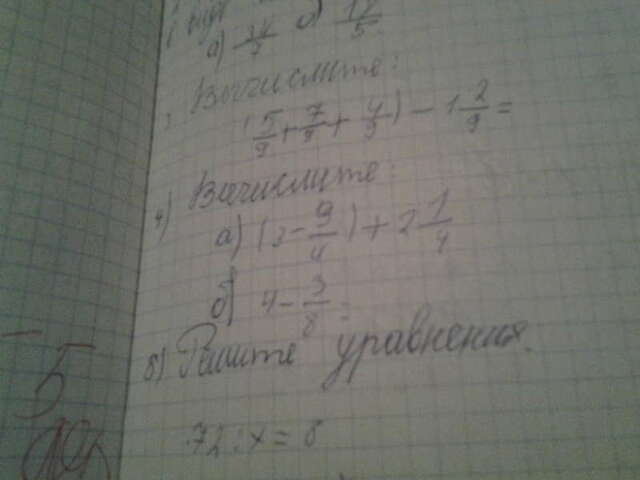 а) 14/7 б) 12/5
Вычислите:
(5/9 + 7/9 + 4/9) - 1 2/9 =
4) Вычислите:
а) (3 - 9/4) + 2 1/4
б) 4 - 3/8 =
5) Решите уравнения.
72 : х = 8
- 5